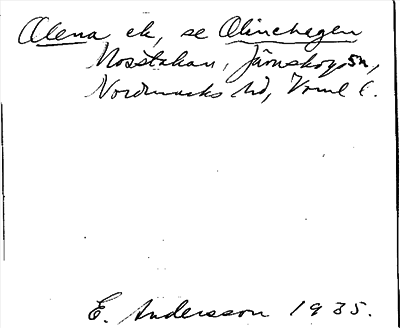 Alena ek, se Alinehagen
Mosstakan, Järnskog sn,
Nordmarks hd, Vrml l.
E. Andersson 1935.